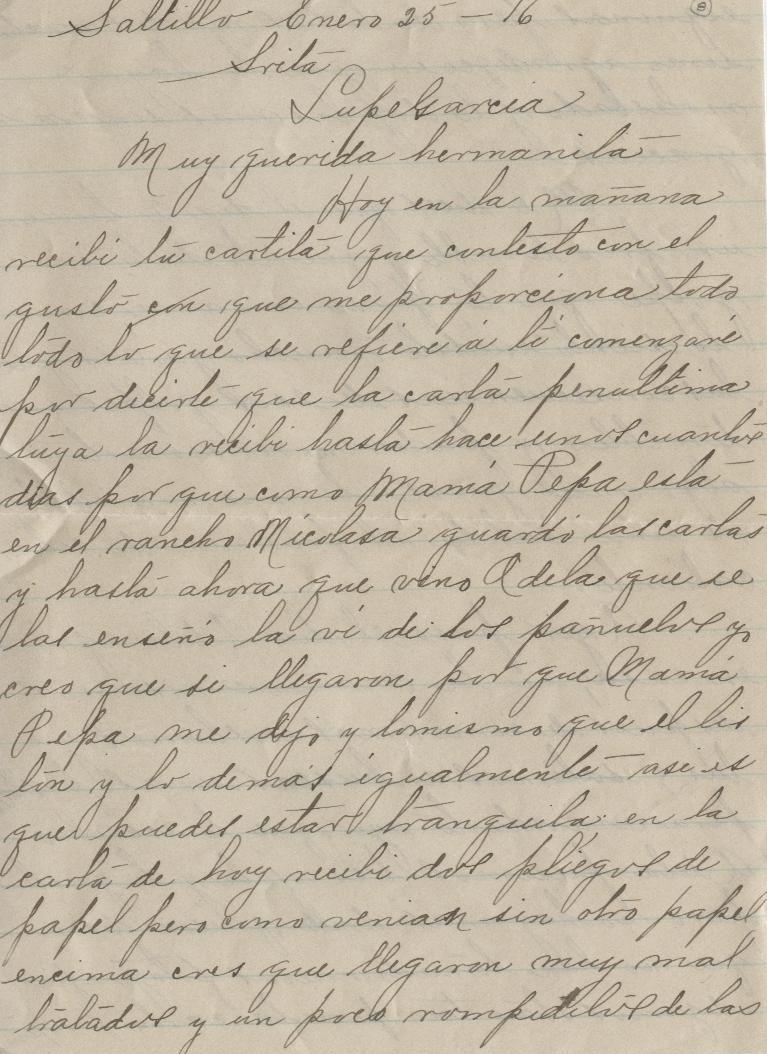 Saltillo Enero 25-16
Srita
Lupe Garcia
Muy querida hermanita
Hoy en la mañana
recibi tu cartita que contesto con el
gusto con que me proporciona todo
todo lo que se refiere á ti comenzaré
por decirte que la carta penultima
tuya la recibi hasta hace unos cuantos
dias por que como Mamá Pepa esta
en el rancho Nicolasa guardo las cartas
y hasta ahora que vino Adela que se
las enseño la vi de los pañuelos yo
creo que si llegaron por que Mamá
Pepa me dijo y lo mismo que el lis
tón y lo demas igualmente asi es
que puedes estar tranquila en la
carta de hoy recibi dos pliegos de
papel pero como venian sin otro papel
encima cres que llegaron muy mal
tratados y un poco rompiditos de las